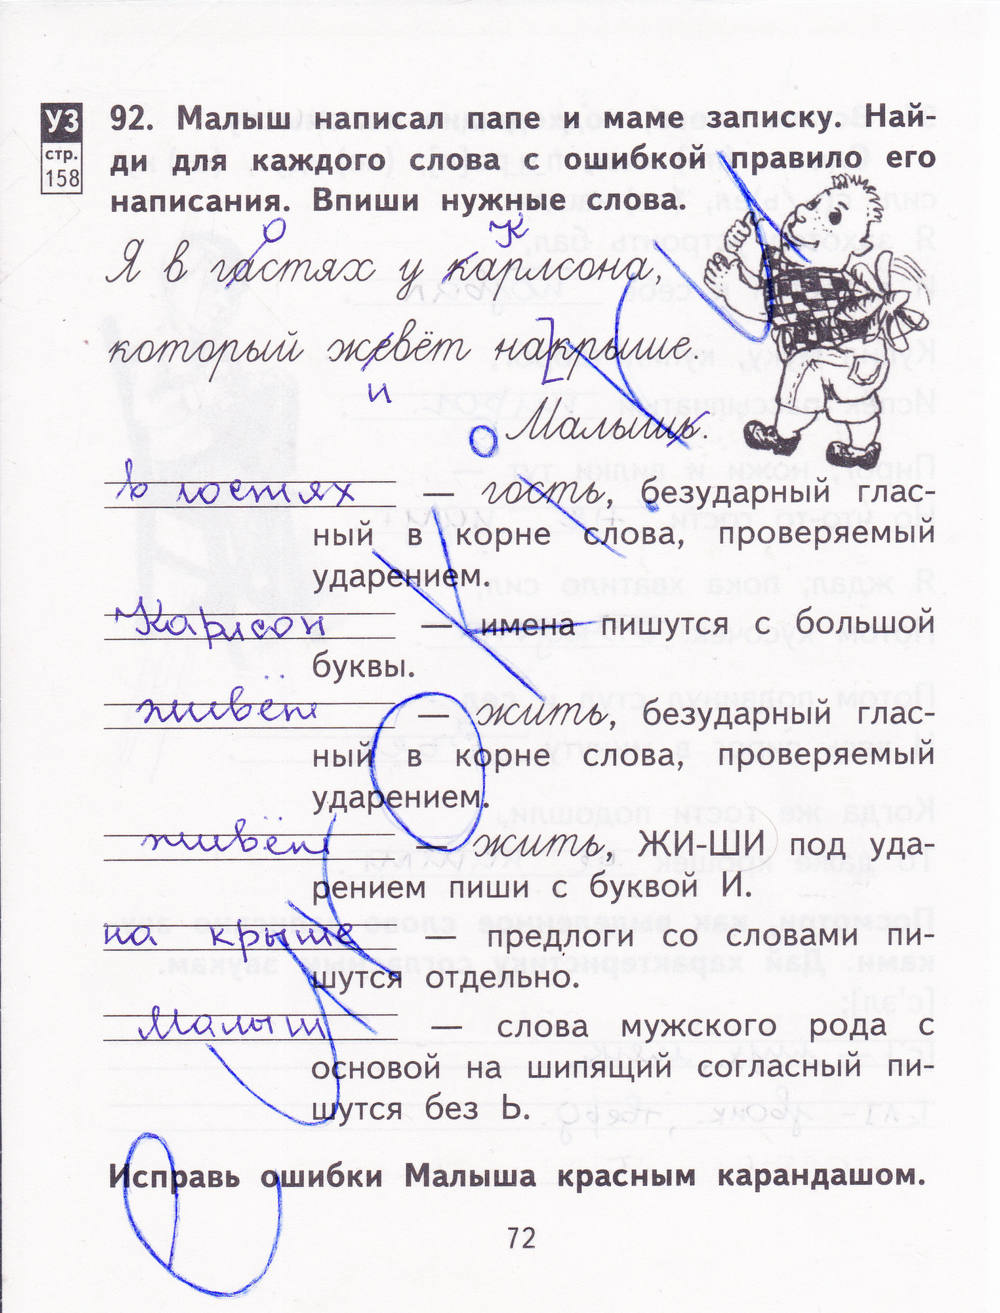 УЗ
стр.
158
92. Малыш написал папе и маме записку. Най-
ди для каждого слова с ошибкой правило его
написания. Впиши нужные слова.
о К
Я в гастях у карлсона,
который жевёт накрыше.
и
Малышь.
в гостях — гость, безударный глас-
ный в корне слова, проверяемый
ударением.
Карлсон — имена пишутся с большой
буквы.
живёт — жить, безударный глас-
ный в корне слова, проверяемый
ударением.
живёт — жить, ЖИ-ШИ под уда-
рением пиши с буквой И.
на крыше — предлоги со словами пи-
шутся отдельно.
Малыш — слова мужского рода с
основой на шипящий согласный пи-
шутся без Ь.
Исправь ошибки Малыша красным карандашом.
72